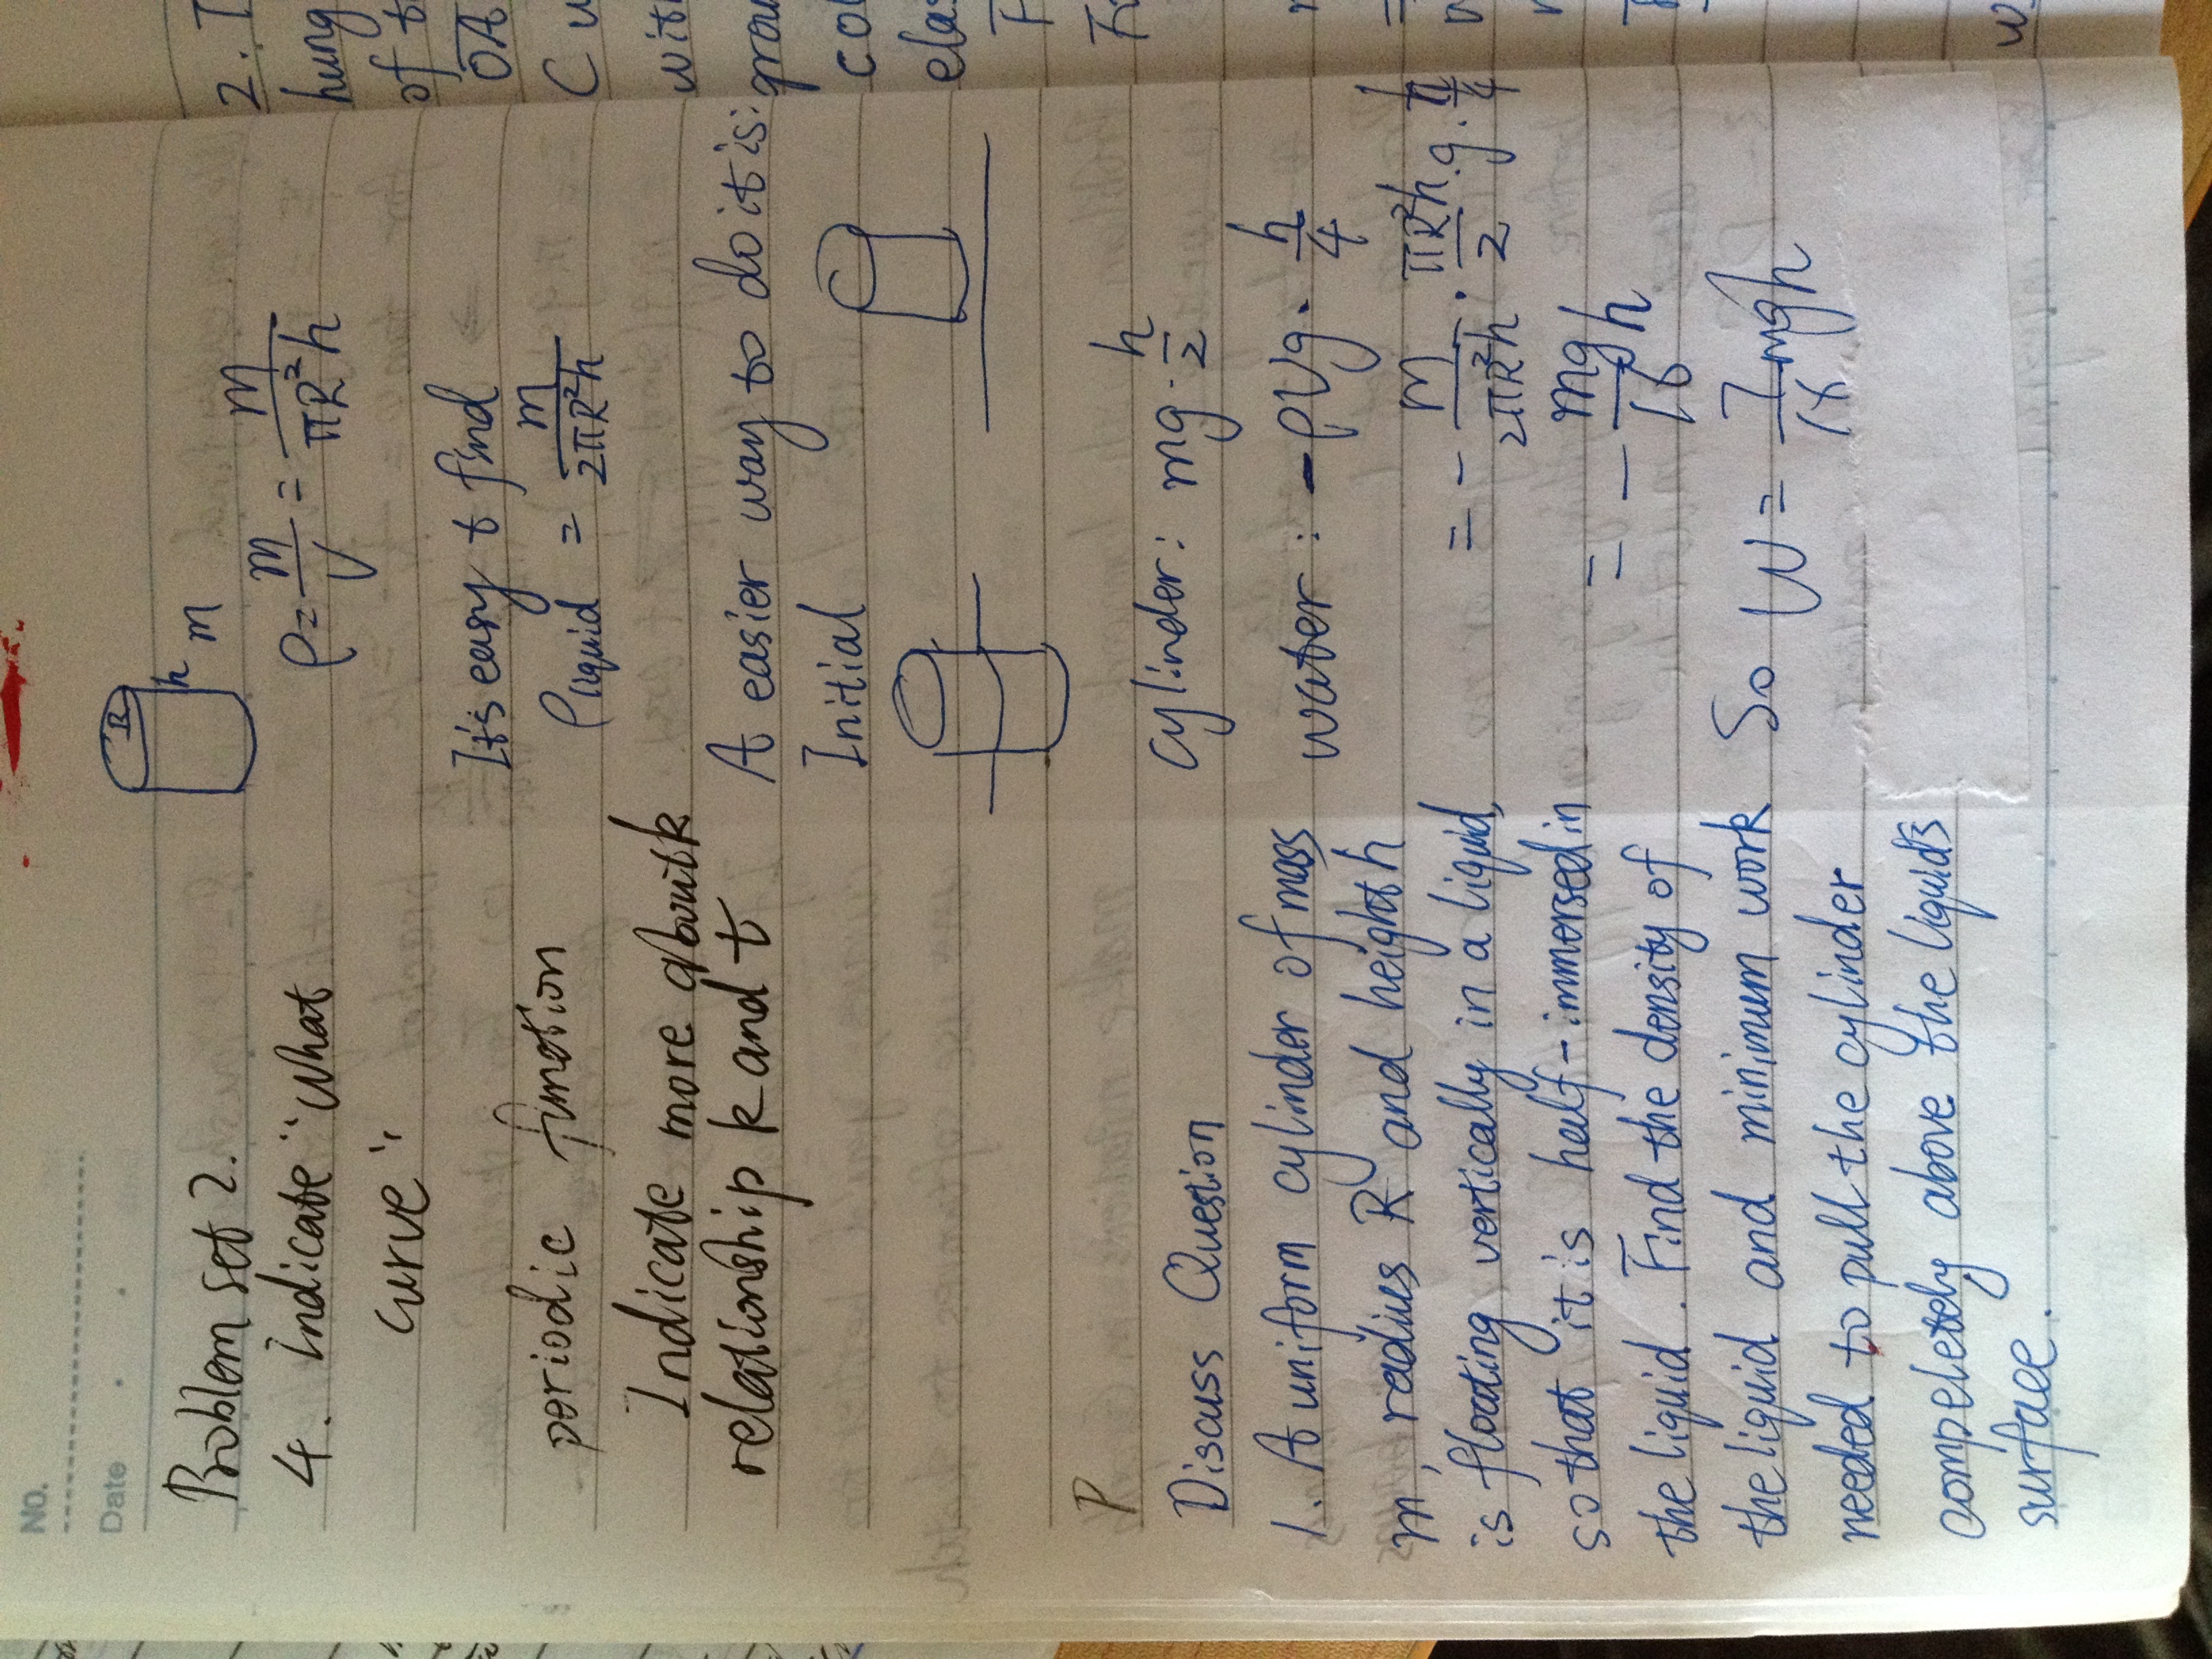 NO.
Date
Problem set 2.
4. Indicate "What
curve"
periodic function
Indicate more about k
relationship k and t
P
Discuss Question
1. A uniform cylinder of mass
m, radius R and height h
is floating vertically in a liquid,
so that it is half-immersed in
the liquid. Find the density of
the liquid and minimum work
needed to pull the cylinder
compeletely above the liquid's
surface.
R
h
m
ρ = m/V = m/πR²h
It's easy t find
ρ liquid = m/2πR²h
A easier way to do it is:
Initial
cylinder: mg · h/2
water: -ρVg · h/4
= - m/2πR²h · πR²h/2 · g · h/4
= - mg/16 h
So W = 7/16 mgh
2. T
hung
of t
OA
C w
with
grou
col
elas
F